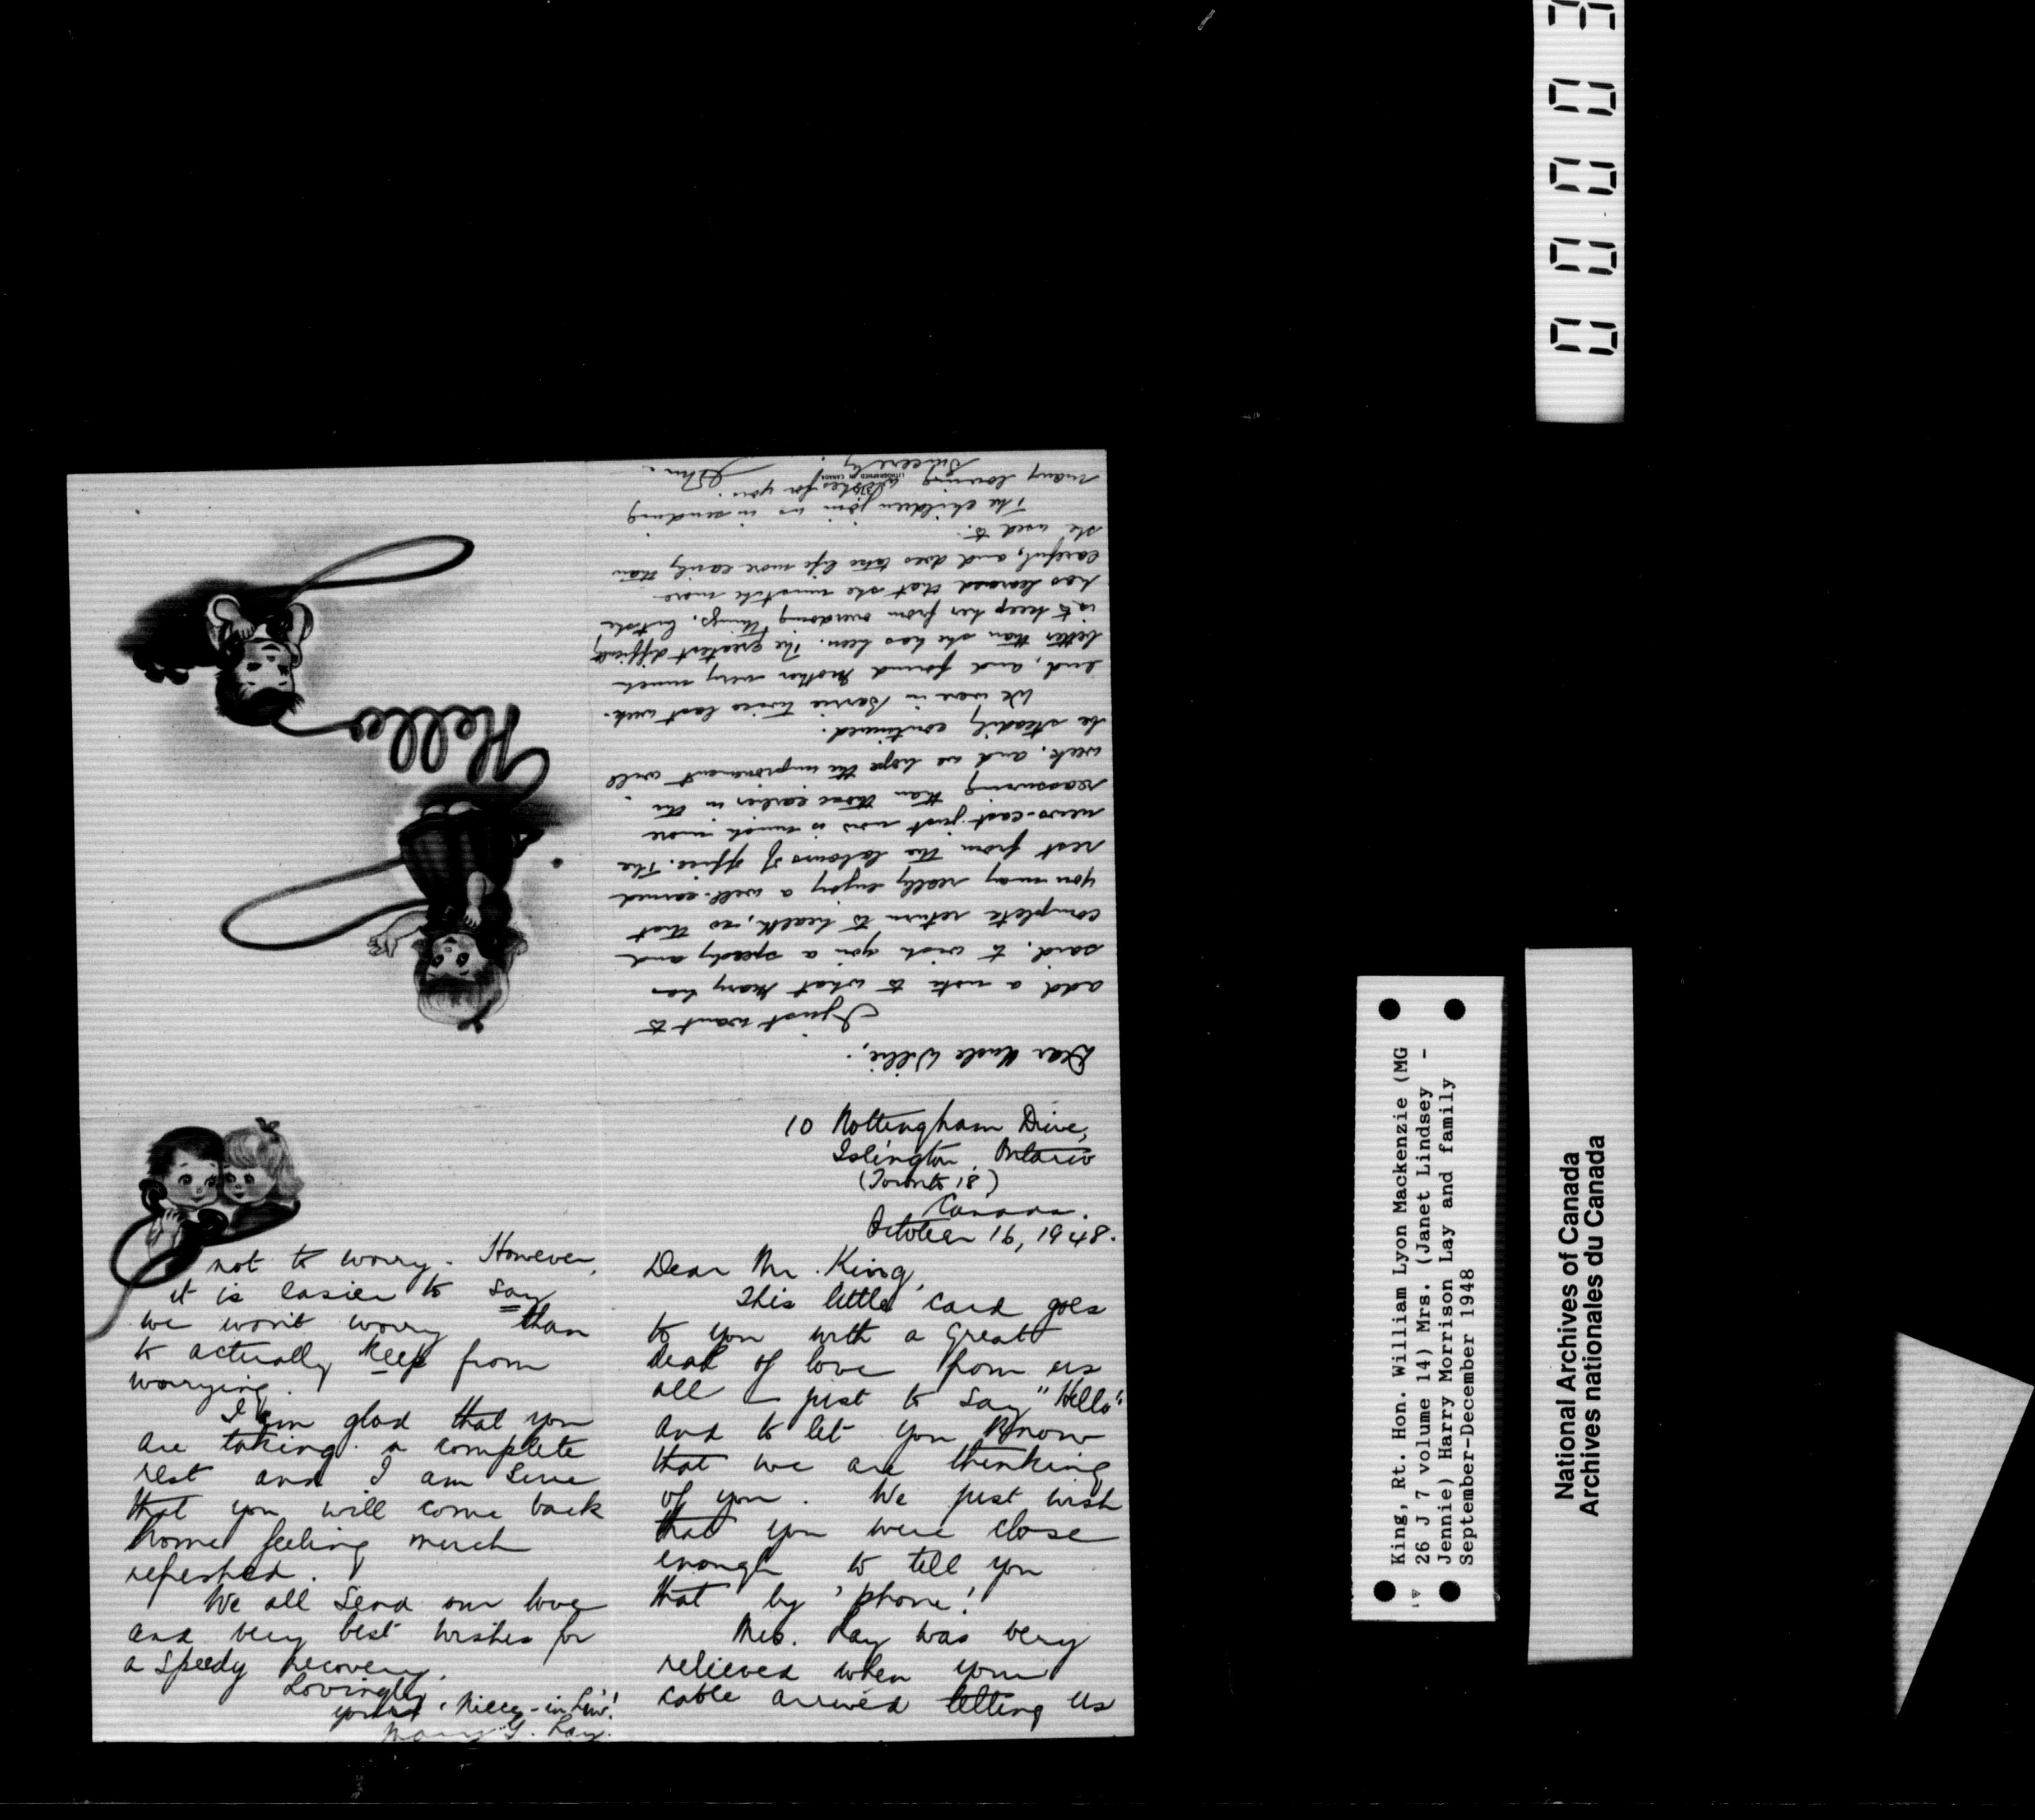 Hello
10 Nottingham Drive,
Islington, Ontario
(Toronto 18)
Canada.
October 16, 1948.
Dear Mr. King,
This little card goes
to you with a great
deal of love from us
all – just to say "Hello"
and to let you know
that we are thinking
of you. We just wish
that you were close
enough to tell you
that by 'phone!
Mrs. Lay was very
relieved when your
cable arrived letting us
not to worry. However,
it is easier to say
we won't worry than
to actually keep from
worrying.
I am glad that you
are taking a complete
rest and I am sure
that you will come back
home feeling much
refreshed.
We all send our love
and very best wishes for
a speedy recovery.
Lovingly
your "Niece-in-law"
Mary G. Lay.
Dear Uncle Willie,
I just want to
add a note to what Mary has
said, to wish you a speedy and
complete return to health, so that
you may really enjoy a well-earned
rest from the labours of office. The
news-cast just now is much more
reassuring than those earlier in the
week, and we hope the improvement will
be steadily continued.
We were in Barrie twice last week-
end, and found Mother very much
better than she has been. The greatest difficulty
is to keep her from overdoing things, but she
has learned that she must be more
careful, and does take life more easily than
she used to.
The children join us in sending
many loving wishes for you.
LITHOGRAPHED IN CANADA
Sincerely,
John.
King, Rt. Hon. William Lyon Mackenzie (MG
26 J 7 volume 14) Mrs. (Janet Lindsey -
Jennie) Harry Morrison Lay and family
September-December 1948
National Archives of Canada
Archives nationales du Canada